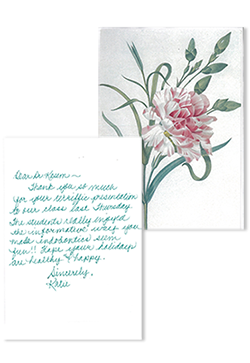 Dear Dr. Keum ~
Thank you so much
for your terrific presentation
to our class last Thursday.
The students really enjoyed
the informative way you
make endodontics seem
fun!! Hope your holidays
are healthy & happy.
Sincerely,
Katie